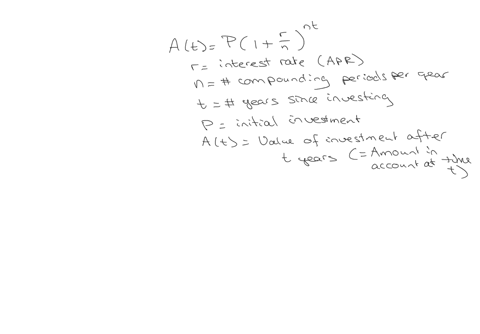 A(t) = P(1 + r/n)^nt
r = interest rate (APR)
n = # compounding periods per year
t = # years since investing
P = initial investment
A(t) = Value of investment after
t years (= Amount in
account at time
t)